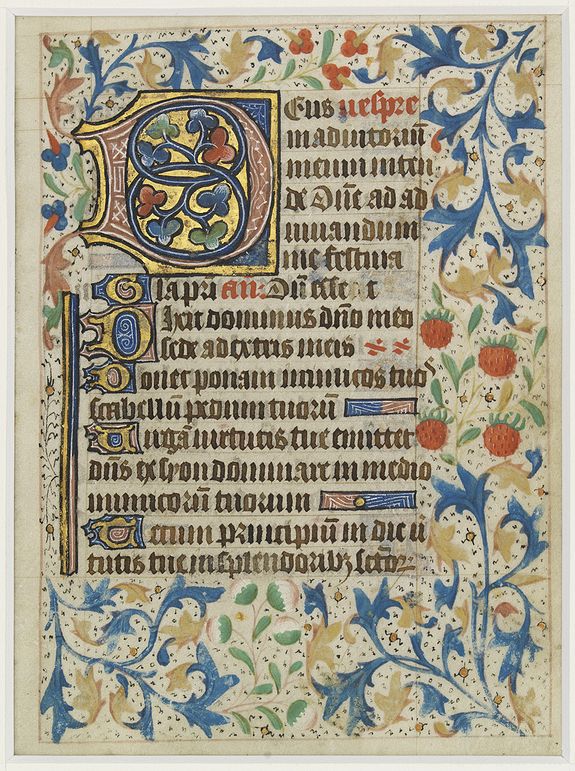 DEus vespre
in adiutoriū
meum inten
de Dn̄e ad ad
iuuandum
me festina
Gla pri an. Dū esset
Dixit dominus dn̄o meo
sede a dextris meis
Donec ponam inimicos tuos
scabellū pedum tuorū
Uirgā uirtutis tue emittet
dn̄s ex syon dominare in medio
inimicorū tuorum
Tecum principium in die uir
tutis tue in splendoribꝫ sctōꝝ